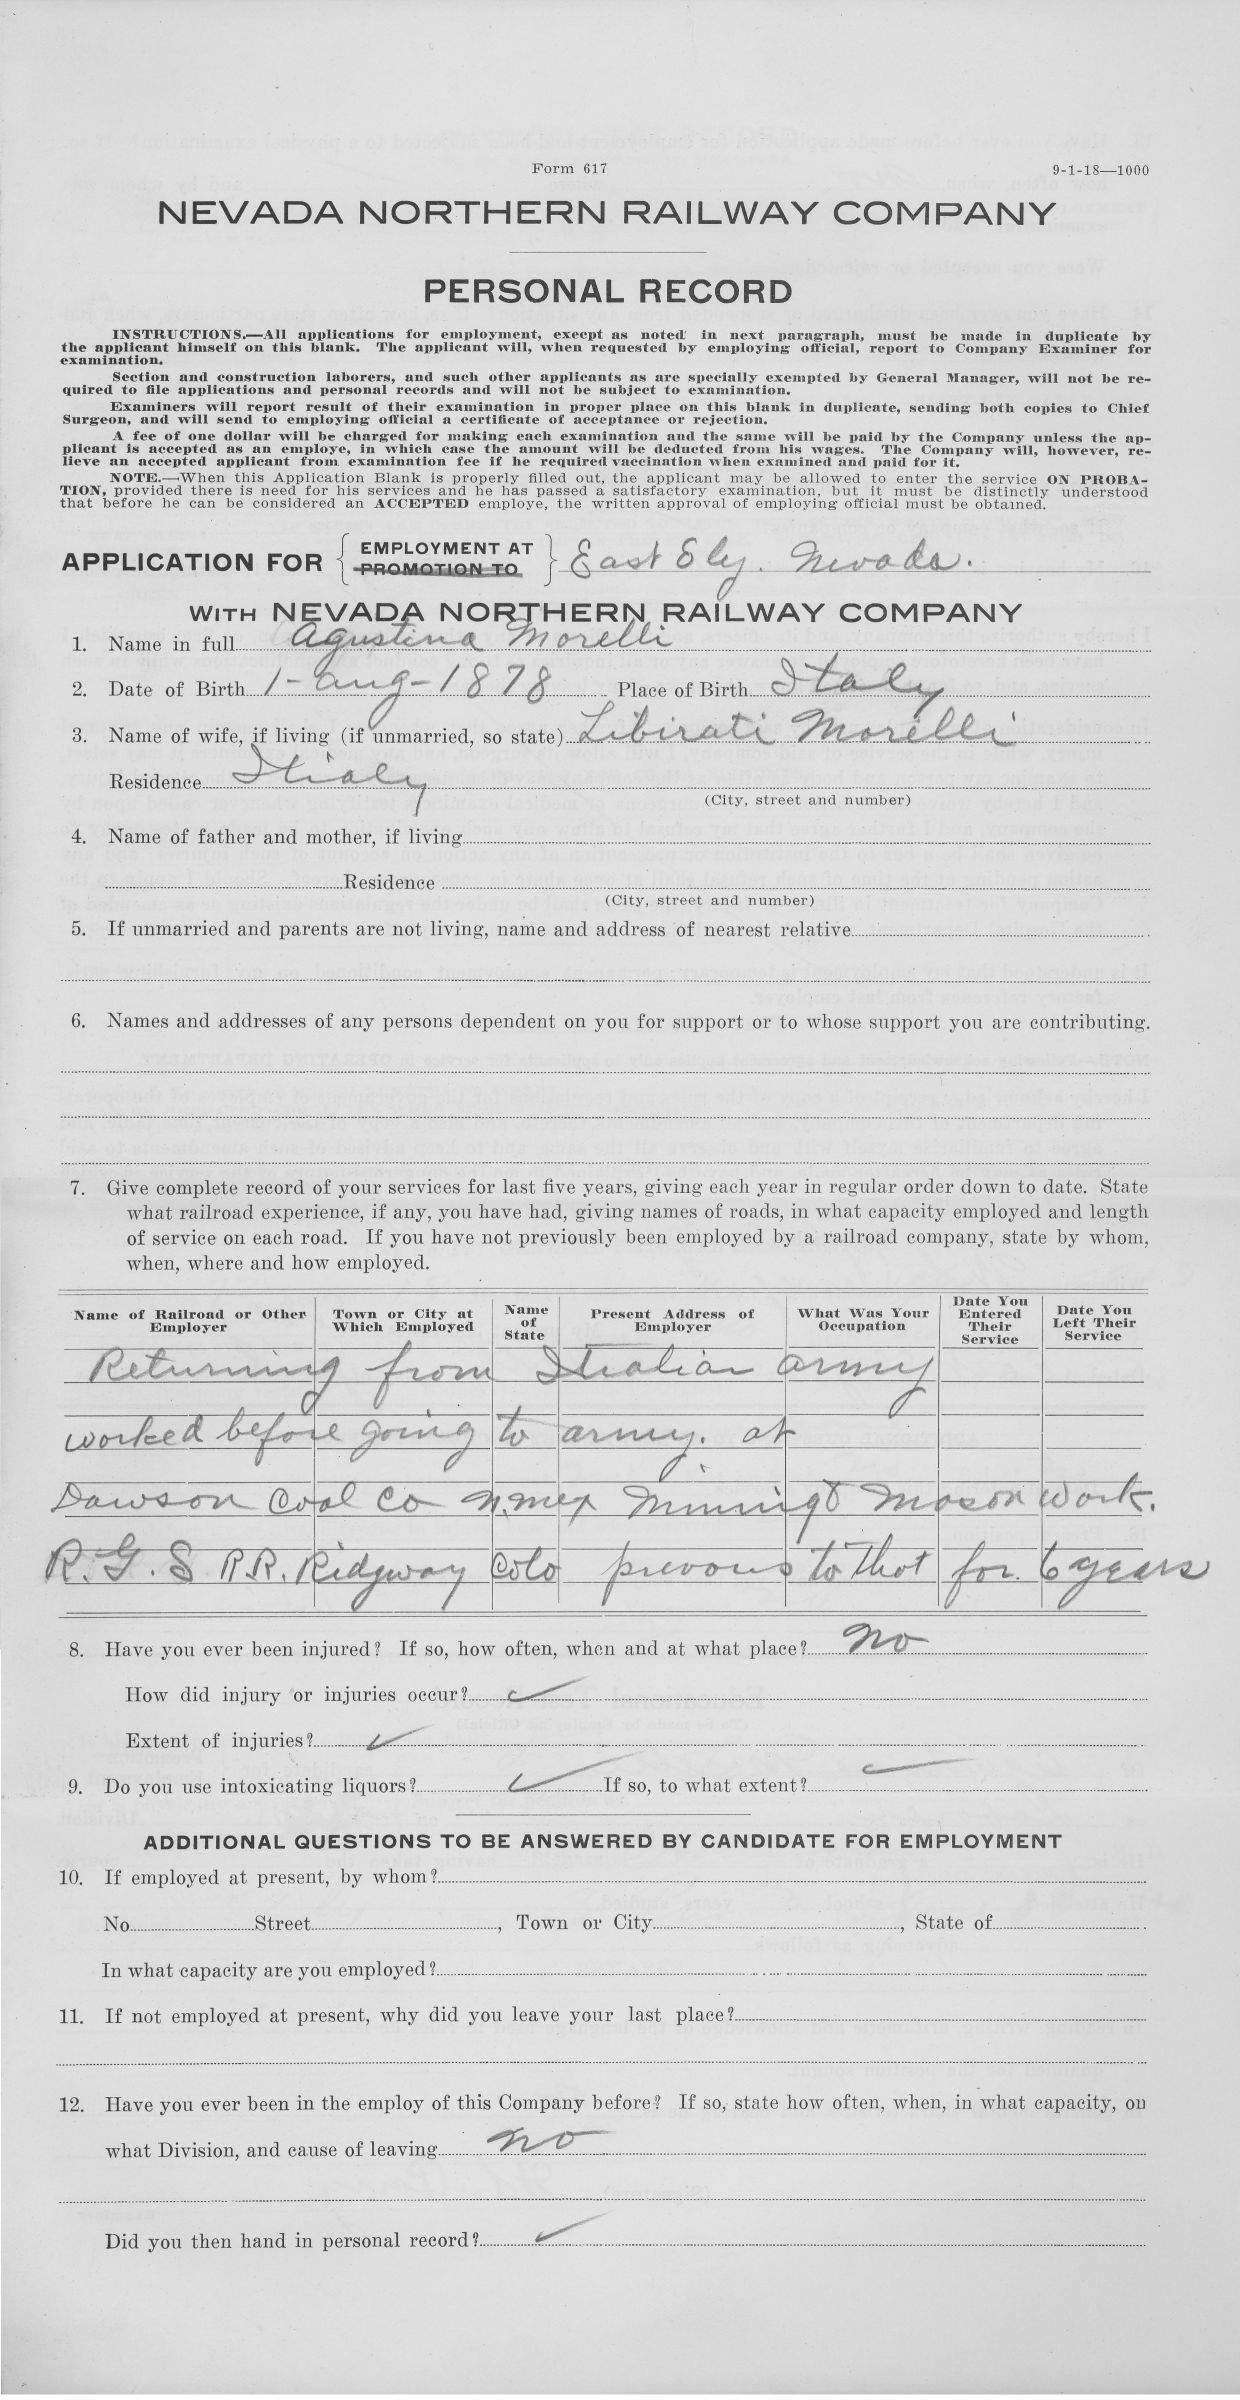 Form 617
9-1-18—1000
NEVADA NORTHERN RAILWAY COMPANY
PERSONAL RECORD
INSTRUCTIONS.—All applications for employment, except as noted in next paragraph, must be made in duplicate by
the applicant himself on this blank. The applicant will, when requested by employing official, report to Company Examiner for
examination.
Section and construction laborers, and such other applicants as are specially exempted by General Manager, will not be re-
quired to file applications and personal records and will not be subject to examination.
Examiners will report result of their examination in proper place on this blank in duplicate, sending both copies to Chief
Surgeon, and will send to employing official a certificate of acceptance or rejection.
A fee of one dollar will be charged for making each examination and the same will be paid by the Company unless the ap-
plicant is accepted as an employe, in which case the amount will be deducted from his wages. The Company will, however, re-
lieve an accepted applicant from examination fee if he required vaccination when examined and paid for it.
NOTE.—When this Application Blank is properly filled out, the applicant may be allowed to enter the service ON PROBA-
TION, provided there is need for his services and he has passed a satisfactory examination, but it must be distinctly understood
that before he can be considered an ACCEPTED employe, the written approval of employing official must be obtained.
APPLICATION FOR { EMPLOYMENT AT
PROMOTION TO } East Ely. Nevada.
WITH NEVADA NORTHERN RAILWAY COMPANY
1. Name in full Agustina Morelli
2. Date of Birth 1-aug-1878 Place of Birth Italy
3. Name of wife, if living (if unmarried, so state) Libirati Morelli
Residence Itialy
(City, street and number)
4. Name of father and mother, if living
Residence
(City, street and number)
5. If unmarried and parents are not living, name and address of nearest relative
6. Names and addresses of any persons dependent on you for support or to whose support you are contributing.
7. Give complete record of your services for last five years, giving each year in regular order down to date. State
what railroad experience, if any, you have had, giving names of roads, in what capacity employed and length
of service on each road. If you have not previously been employed by a railroad company, state by whom,
when, where and how employed.
Name of Railroad or Other Employer
Town or City at Which Employed
Name of State
Present Address of Employer
What Was Your Occupation
Date You Entered Their Service
Date You Left Their Service
Returning from Itialian army
worked before going to army. at
Dawson Coal Co N. mex Mining & Mason work.
R. G. S R.R. Ridgway Colo prevous to that for 6 years
8. Have you ever been injured? If so, how often, when and at what place? No
How did injury or injuries occur? ✓
Extent of injuries? ✓
9. Do you use intoxicating liquors? ✓ If so, to what extent? ✓
ADDITIONAL QUESTIONS TO BE ANSWERED BY CANDIDATE FOR EMPLOYMENT
10. If employed at present, by whom?
No. Street, Town or City, State of
In what capacity are you employed?
11. If not employed at present, why did you leave your last place?
12. Have you ever been in the employ of this Company before? If so, state how often, when, in what capacity, on
what Division, and cause of leaving no
Did you then hand in personal record? ✓